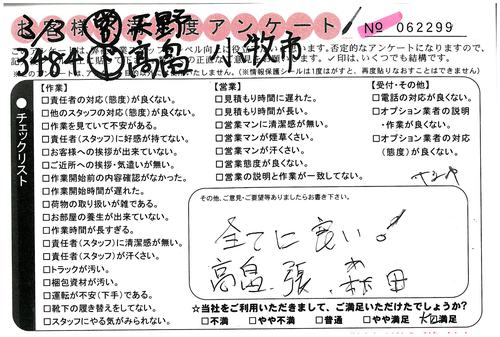 お客様満足度アンケート
No 062299
3/3 営 天野
3484 高畠 小牧市
チェックリスト
【作業】
□責任者の対応(態度)が良くない。
□他のスタッフの対応(態度)が良くない。
□作業を見ていて不安がある。
□責任者(スタッフ)に好感が持てない。
□お客様への挨拶が出来ていない。
□ご近所への挨拶・気遣いが無い。
□作業開始前の内容確認がなかった。
□作業開始時間が遅れた。
□荷物の取り扱いが雑である。
□お部屋の養生が出来ていない。
□作業時間が長すぎる。
□責任者(スタッフ)に清潔感が無い。
□責任者(スタッフ)が汗くさい。
□トラックが汚い。
□梱包資材が汚い。
□運転が不安(下手)である。
□靴下の履き替えをしてない。
□スタッフにやる気がみられない。
【営業】
□見積もり時間に遅れた。
□見積もり時間が長い。
□営業マンに清潔感が無い。
□営業マンが煙草くさい。
□営業マンが汗くさい。
□営業態度が良くない。
□営業の説明と作業が一致してない。
【受付・その他】
□電話の対応が良くない。
□オプション業者の説明
・作業が良くない。
□オプション業者の対応
(態度)が良くない。
その他、ご意見・ご要望等ありましたらお書き下さい。
全てに良い。
高畠、張、森田
☆当社をご利用いただきまして、ご満足いただけたでしょうか?
□不満 □やや不満 □普通 □やや満足 大満足